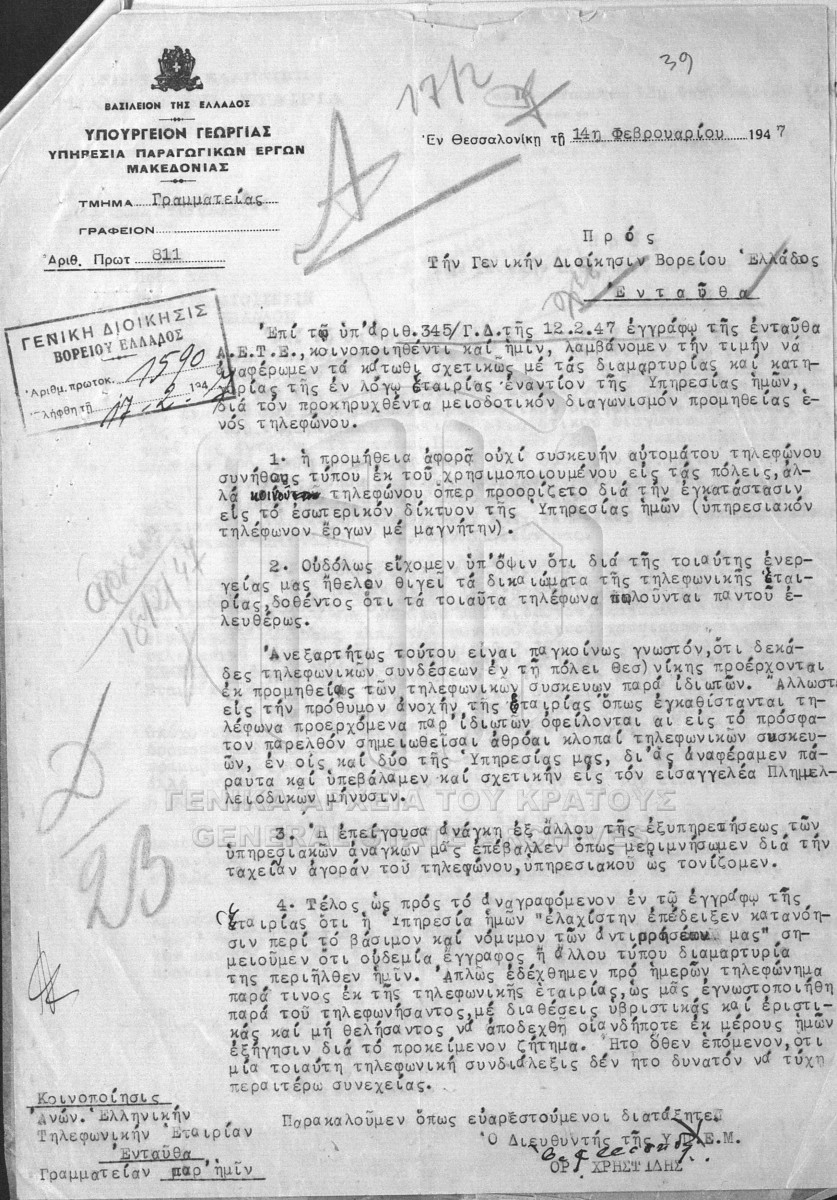 39
17/2
ΒΑΣΙΛΕΙΟΝ ΤΗΣ ΕΛΛΑΔΟΣ
ΥΠΟΥΡΓΕΙΟΝ ΓΕΩΡΓΙΑΣ
ΥΠΗΡΕΣΙΑ ΠΑΡΑΓΩΓΙΚΩΝ ΕΡΓΩΝ
ΜΑΚΕΔΟΝΙΑΣ
ΤΜΗΜΑ Γραμματείας
ΓΡΑΦΕΙΟΝ
Ἀριθ. Πρωτ 811
Ἐν Θεσσαλονίκῃ τῇ 14η Φεβρουαρίου 1947
Π ρ ό ς
Τήν Γενικήν Διοίκησιν Βορείου Ἑλλάδος
Ἐ ν τ α ῦ θ α
ΓΕΝΙΚΗ ΔΙΟΙΚΗΣΙΣ
ΒΟΡΕΙΟΥ ΕΛΛΑΔΟΣ
Ἀριθμ. πρωτοκ. 1590
λήφθη τῇ 17-2-194
Ἐπί τῷ ὑπ'ἀριθ.345/Γ.Δ.τῆς 12.2.47 ἐγγράφῳ τῆς ἐνταῦθα
Α.Ε.Τ.Ε.,κοινοποιηθέντι καί ἡμῖν, λαμβάνομεν τήν τιμήν νά
ἀναφέρωμεν τά κάτωθι σχετικῶς μέ τάς διαμαρτυρίας καί κατη-
γορίας τῆς ἐν λόγῳ ἑταιρίας ἐναντίον τῆς Ὑπηρεσίας ἡμῶν,
διά τόν προκηρυχθέντα μειοδοτικόν διαγωνισμόν προμηθείας ἑ-
νός τηλεφώνου.
1. ἡ προμήθεια ἀφορᾷ οὐχί συσκευήν αὐτομάτου τηλεφώνου
συνήθους τύπου ἐκ τοῦ χρησιμοποιουμένου εἰς τάς πόλεις,ἀλ-
λά τηλεφώνου ὅπερ προορίζετο διά τήν ἐγκατάστασιν
εἰς τό ἐσωτερικόν δίκτυον τῆς Ὑπηρεσίας ἡμῶν (ὑπηρεσιακόν
τηλέφωνον ἔργων μέ μαγνήτην).
2. Οὐδόλως εἴχομεν ὑπ'ὄψιν ὅτι διά τῆς τοιαύτης ἐνερ-
γείας μας ἤθελον θιγεῖ τά δικαιώματα τῆς τηλεφωνικῆς ἑται-
ρίας,δοθέντος ὅτι τά τοιαῦτα τηλέφωνα πωλοῦνται παντοῦ ἐ-
λευθέρως.
Ἀνεξαρτήτως τούτου εἶναι παγκοίνως γνωστόν,ὅτι δεκά-
δες τηλεφωνικῶν συνδέσεων ἐν τῇ πόλει Θεσ)νίκης προέρχονται
ἐκ προμηθείας τῶν τηλεφωνικῶν συσκευῶν παρά ἰδιωτῶν. Ἄλλωστε
εἰς τήν πρόθυμον ἀνοχήν τῆς ἑταιρίας ὅπως ἐγκαθίστανται τη-
λέφωνα προερχόμενα παρ'ἰδιωτῶν ὀφείλονται αἱ εἰς τό πρόσφα-
τον παρελθόν σημειωθεῖσαι ἀθρόαι κλοπαί τηλεφωνικῶν συσκευ-
ῶν, ἐν οἷς καί δύο τῆς Ὑπηρεσίας μας, δι'ἅς ἀναφέραμεν πά-
ραυτα καί ὑπεβάλαμεν καί σχετικήν εἰς τόν εἰσαγγελέα Πλημελ-
λειοδικῶν μήνυσιν.
ΓΕΝΙΚΑ ΑΡΧΕΙΑ ΤΟΥ ΚΡΑΤΟΥΣ
GENERAL STATE ARCHIVES
3. Ἡ ἐπείγουσα ἀνάγκη ἐξ ἄλλου τῆς ἐξυπηρετήσεως τῶν
ὑπηρεσιακῶν ἀναγκῶν μᾶς ἐπέβαλλεν ὅπως μεριμνήσωμεν διά τήν
ταχεῖαν ἀγοράν τοῦ τηλεφώνου,ὑπηρεσιακοῦ ὡς τονίζομεν.
4. Τέλος ὡς πρός τό ἀναγραφόμενον ἐν τῷ ἐγγράφῳ τῆς
ἑταιρίας ὅτι ἡ Ὑπηρεσία ἡμῶν "ἐλαχίστην ἐπέδειξεν κατανόη-
σιν περί τό βάσιμον καί νόμυμον τῶν ἀντιρρήσεων μας" ση-
μειοῦμεν ὅτι οὐδεμία ἔγγραφος ἤ ἄλλου τύπου διαμαρτυρία
της περιῆλθεν ἡμῖν. Ἁπλῶς ἐδέχθημεν πρό ἡμερῶν τηλεφώνημα
παρά τινος ἐκ τῆς τηλεφωνικῆς ἑταιρίας,ὡς μᾶς ἐγνωστοποιήθη
παρά τοῦ τηλεφωνήσαντος,μέ διαθέσεις ὑβριστικάς καί ἐριστι-
κάς καί μή θελήσαντος νά ἀποδεχθῇ οἱανδήποτε ἐκ μέρους ἡμῶν
ἐξήγησιν διά τό προκείμενον ζήτημα. Ἦτο ὅθεν ἑπόμενον,ὅτι
μία τοιαύτη τηλεφωνική συνδιάλεξις δέν ἦτο δυνατόν νά τύχῃ
περαιτέρω συνεχείας.
Παρακαλοῦμεν ὅπως εὐαρεστούμενοι διατάξητε.
Ὁ Διευθυντής τῆς Υ.Π.Ε.Μ.
ΟΡ. ΧΡΗΣΤΙΔΗΣ
Κοινοποίησις
Ἀνών. Ἑλληνικήν
Τηλεφωνικήν Ἑταιρίαν
Ἐνταῦθα
Γραμματείαν παρ'ἡμῖν
18/2/47